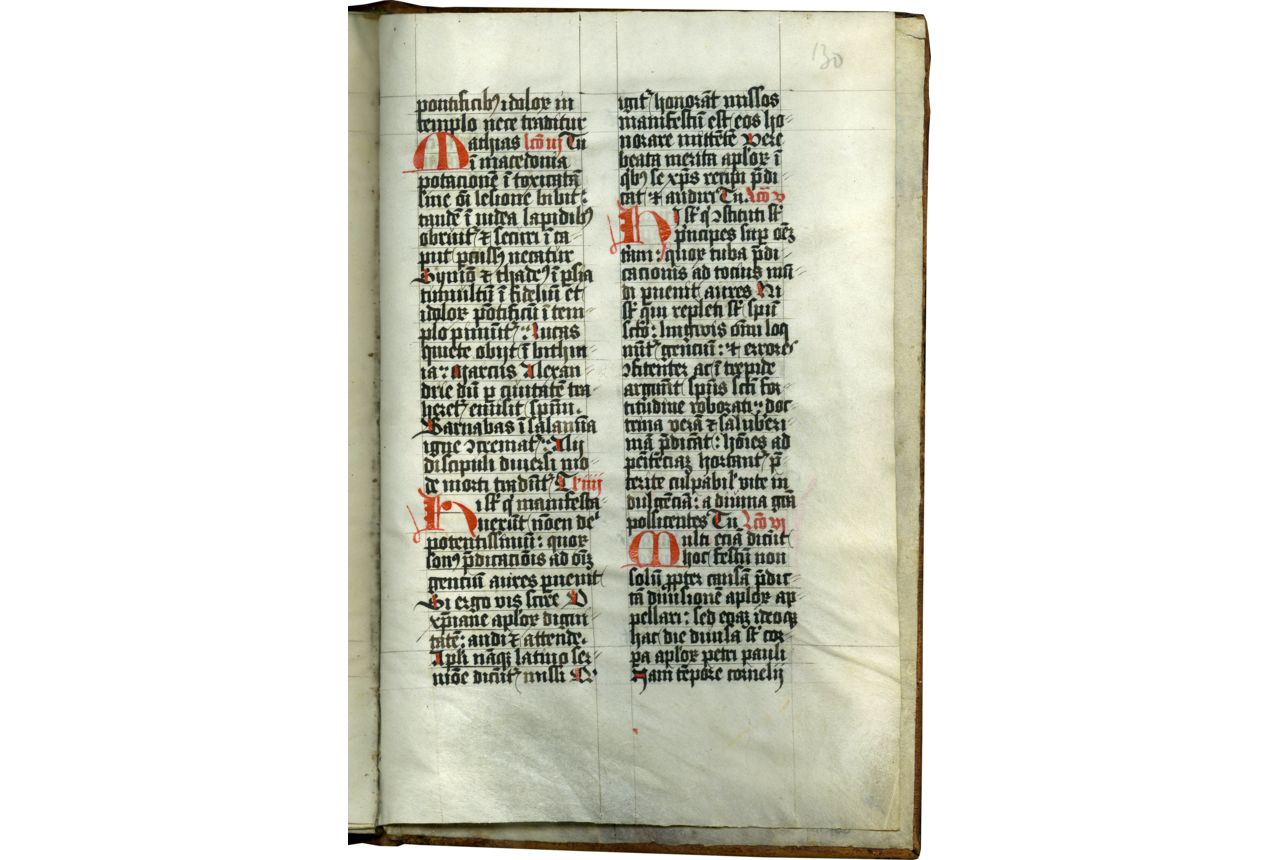 130
pontificib⁹ idolor in
templo nece traditur
Mathias lcō iij Tu
ī macedonia
potacionē ī toxicatā
sine oī lesione bibit :
tandē ī iudea lapidib⁹
obruit᷑ ⁊ securi ī ca
put p̄cuss⁹ necatur
Symō ⁊ thade⁹ ī p̄sia
tumultū ī fidelium et
idolor pōtificū ī tem
plo pimūt᷑ : Lucas
quiete obijt ī bithin
ia : Marcus Alexan
drie dū p ciuitatē tra
heret᷑ emisit spm̄ .
Barnabas ī salamīa
igne ↄcremat᷑ : Alij
discipuli diuersi mo
de morti tradūt᷑ T
Hi sūt q̄ manifesta
uerūt nōen dei
potentissimū : quor
son⁹ p̄dicatiōis ad oīz
gentiū aures puenit
Si ergo vis scire O
xp̄iane aplor digni
tatē : audi ⁊ attende .
Apli nāqꝫ latino ser
mōe dicūt᷑ missi Q
igit᷑ honorāt missos
manifestū est eos ho
norare mittētē Vere
beata merita aplor ī
qb⁹ se xp̄s recipi p̄di
cat ⁊ audiri Tu Lcō v
Hi sūt q̄ ↄstituti sūt
p̄ncipes sup oēz
tr̄am : quor tuba p̄di
cationis ad tocius mū
di puenit aures Hi
sūt qui repleti sūt spū
scō : linguis oīm loq
nūt᷑ gentiū : ⁊ errores
ↄfitenter ac ī trepide
arguūt sp̄us sc̄i for
titudine roborati : doc
trinā verā ⁊ saluberi
mā p̄dicāt : hōies ad
penitēciaꝫ hortant᷑ p̄
terite culpabil᷑ vite in
dulgēciā : a diuina gr̄a
pollicentes Tu Lcō vi
Multi eciā dicūt
hoc festū non
solū ꝓpter causā p̄dic
tā diuisionē aplor ap
pellari : sed eciaꝫ ideoqꝫ
hac die diuisa sūt cor
pa aplor petri pauli
Nam tēpore cornelij